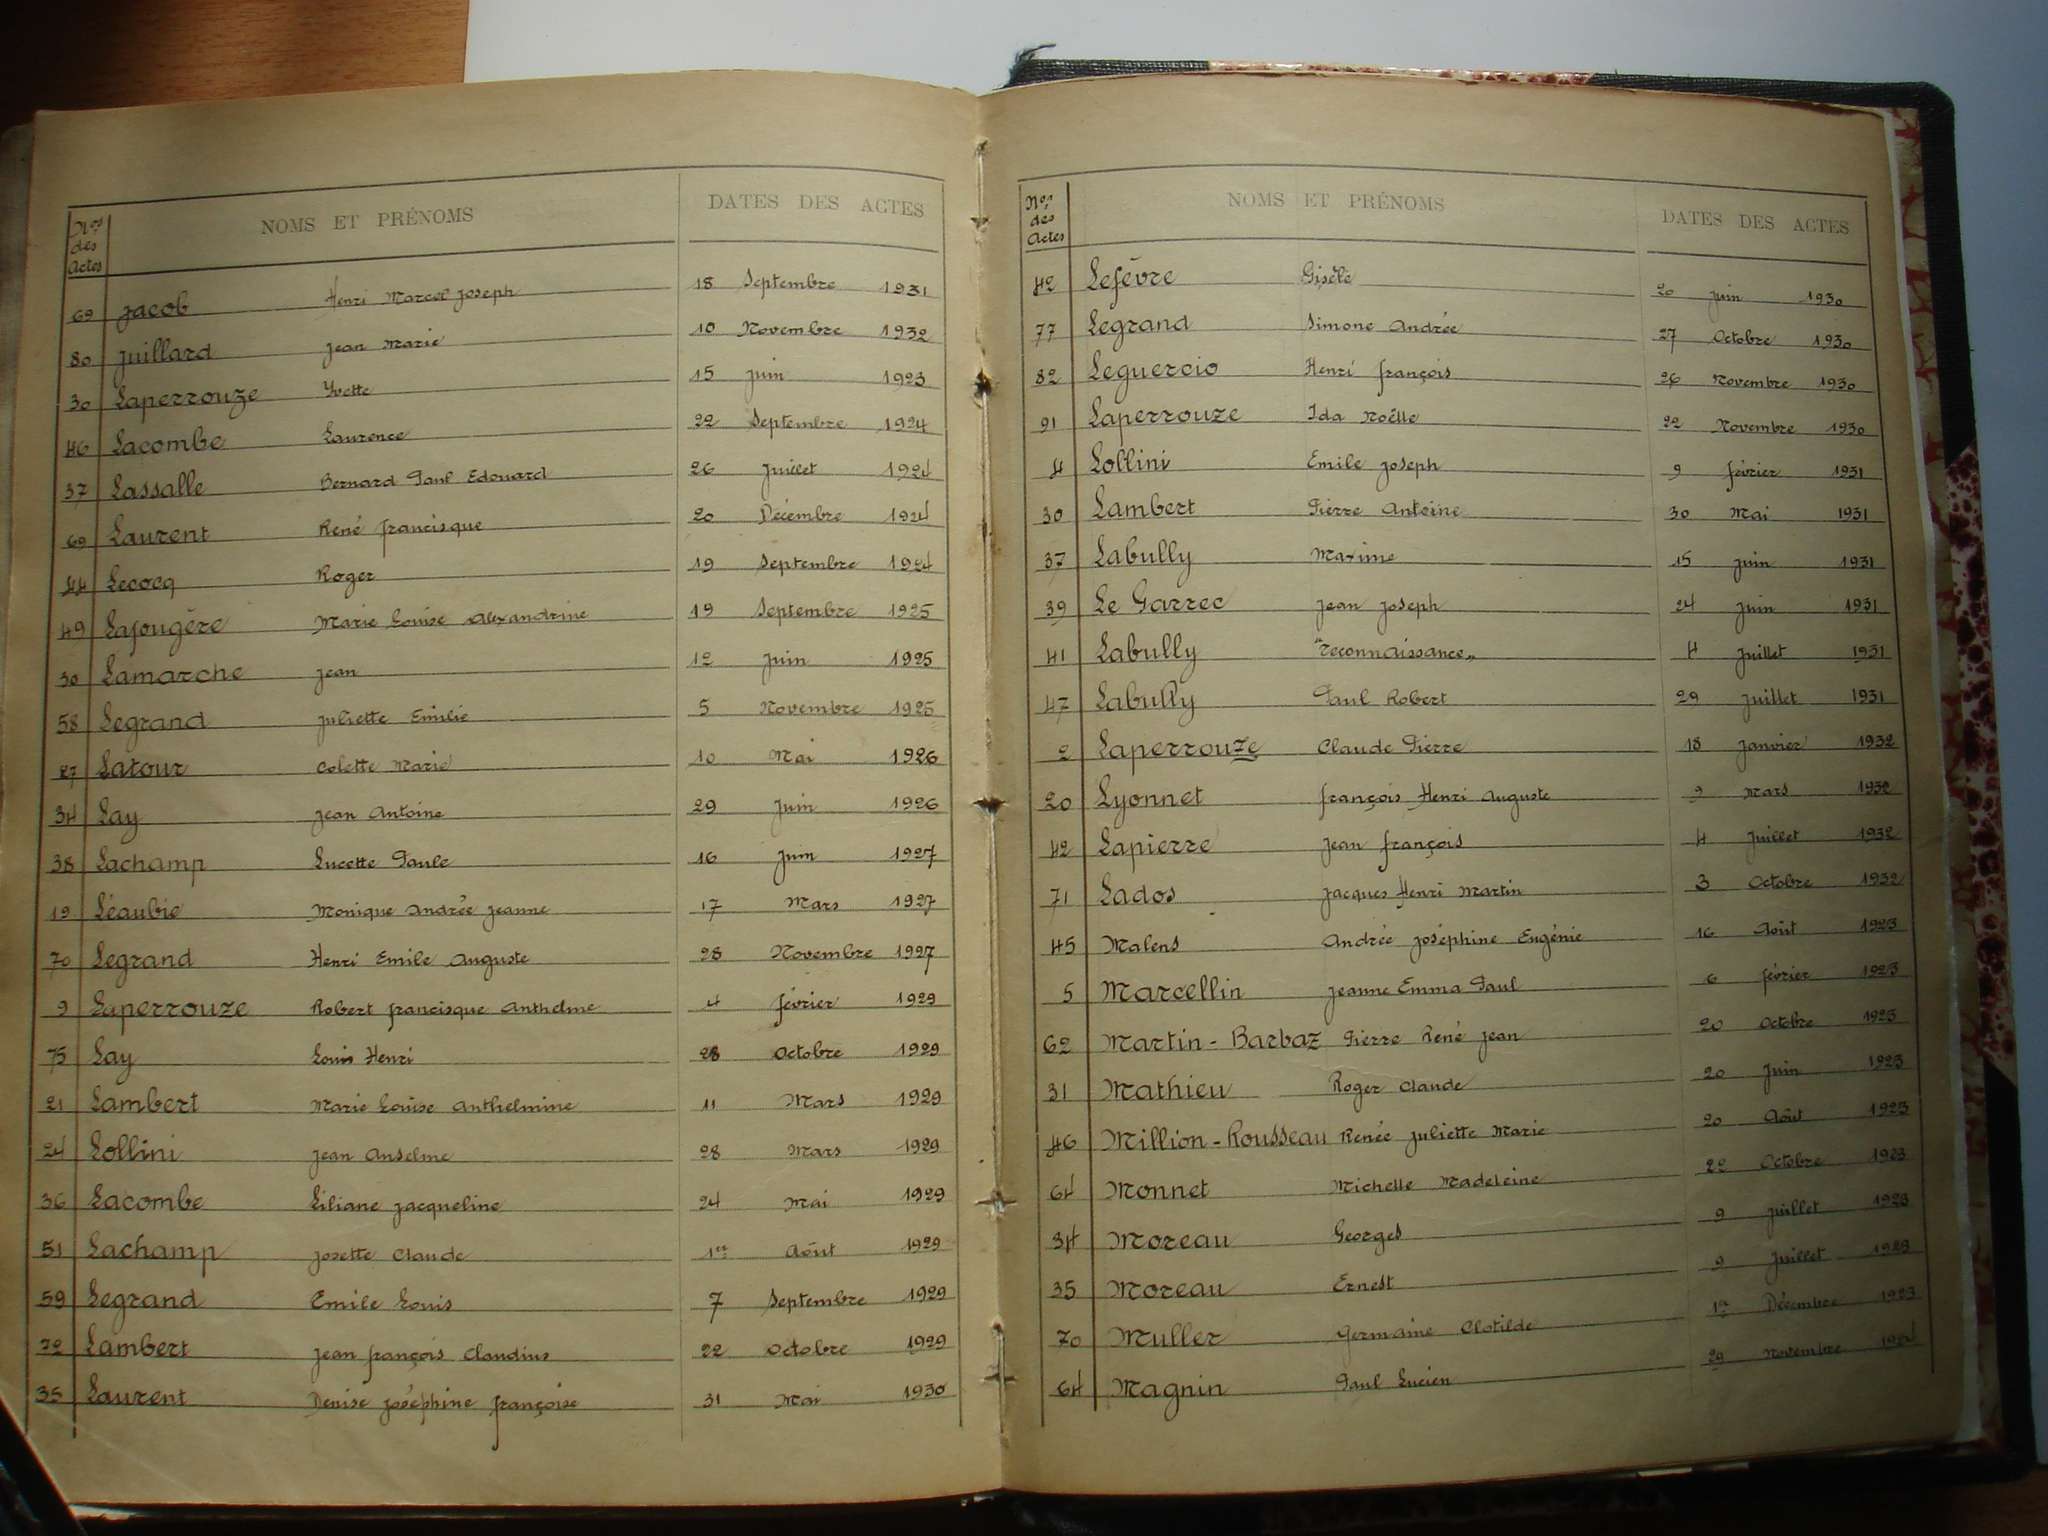 Nos des Actes NOMS ET PRÉNOMS DATES DES ACTES
69 Jacob Henri Marcel Joseph 18 Septembre 1931
80 Juillard Jean Marie 10 Novembre 1932
30 Laperrouze Yvette 15 Juin 1923
46 Lacombe Laurence 22 Septembre 1924
37 Lassalle Bernard Paul Edouard 26 Juillet 1924
69 Laurent René Francisque 20 Décembre 1924
44 Lecocq Roger 19 Septembre 1924
49 Lafougère Marie Louise Alexandrine 19 Septembre 1925
30 Lamarche Jean 12 Juin 1925
58 Legrand Juliette Emilie 5 Novembre 1925
27 Latour Colette Marie 10 Mai 1926
34 Lay Jean Antoine 29 Juin 1926
38 Lachamp Lucette Paule 16 Juin 1927
19 Léaubie Monique Andrée Jeanne 17 Mars 1927
70 Legrand Henri Emile Auguste 28 Novembre 1927
9 Laperrouze Robert Francisque Anthelme 4 Février 1929
75 Lay Louis Henri 28 Octobre 1929
21 Lambert Marie Louise Anthelmine 11 Mars 1929
24 Lollini Jean Anselme 28 Mars 1929
36 Lacombe Liliane Jacqueline 24 Mai 1929
51 Lachamp Josette Claude 1er Août 1929
59 Legrand Emile Louis 7 Septembre 1929
72 Lambert Jean François Claudius 22 Octobre 1929
35 Laurent Denise Joséphine Françoise 31 Mai 1930
Nos des Actes NOMS ET PRÉNOMS DATES DES ACTES
42 Lefèvre Gisèle 20 Juin 1930
77 Legrand Simone Andrée 27 Octobre 1930
82 Leguercio Henri François 26 Novembre 1930
91 Laperrouze Ida Noëlle 22 Novembre 1930
4 Lollini Emile Joseph 9 Février 1931
30 Lambert Pierre Antoine 30 Mai 1931
37 Labully Maxime 15 Juin 1931
39 Le Garrec Jean Joseph 24 Juin 1931
41 Labully "reconnaissance" 4 Juillet 1931
47 Labully Paul Robert 29 Juillet 1931
2 Laperrouze Claude Pierre 18 Janvier 1932
20 Lyonnet François Henri Auguste 9 Mars 1932
42 Lapierre Jean François 4 Juillet 1932
71 Lados Jacques Henri Martin 3 Octobre 1932
45 Malens Andrée Joséphine Eugénie 16 Août 1923
5 Marcellin Jeanne Emma Paul 6 Février 1923
62 Martin-Barbaz Pierre René Jean 20 Octobre 1923
31 Mathieu Roger Claude 20 Juin 1923
46 Million-Rousseau Renée Juliette Marie 20 Août 1923
64 Monnet Michelle Madeleine 22 Octobre 1923
34 Moreau Georges 9 Juillet 1923
35 Moreau Ernest 9 Juillet 1923
70 Muller Germaine Clotilde 1er Décembre 1923
64 Magnin Paul Lucien 29 Novembre 1924